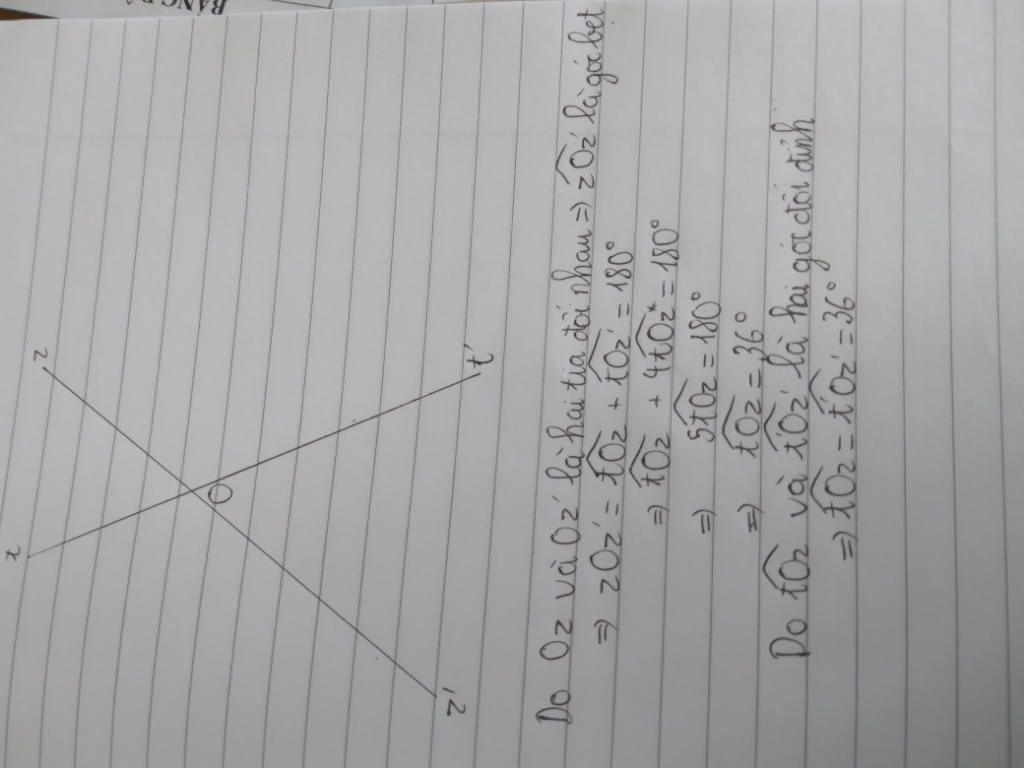 BẢNG
z
t
O
t'
z'
Do Oz và Oz' là hai tia đối nhau => zOz' là góc bẹt
=> zOz' = tOz + tOz' = 180°
=> tOz + 4tOz* = 180°
=> 5tOz = 180°
=> tOz = 36°
Do tOz và t'Oz' là hai góc đối đỉnh
=> tOz = t'Oz' = 36°